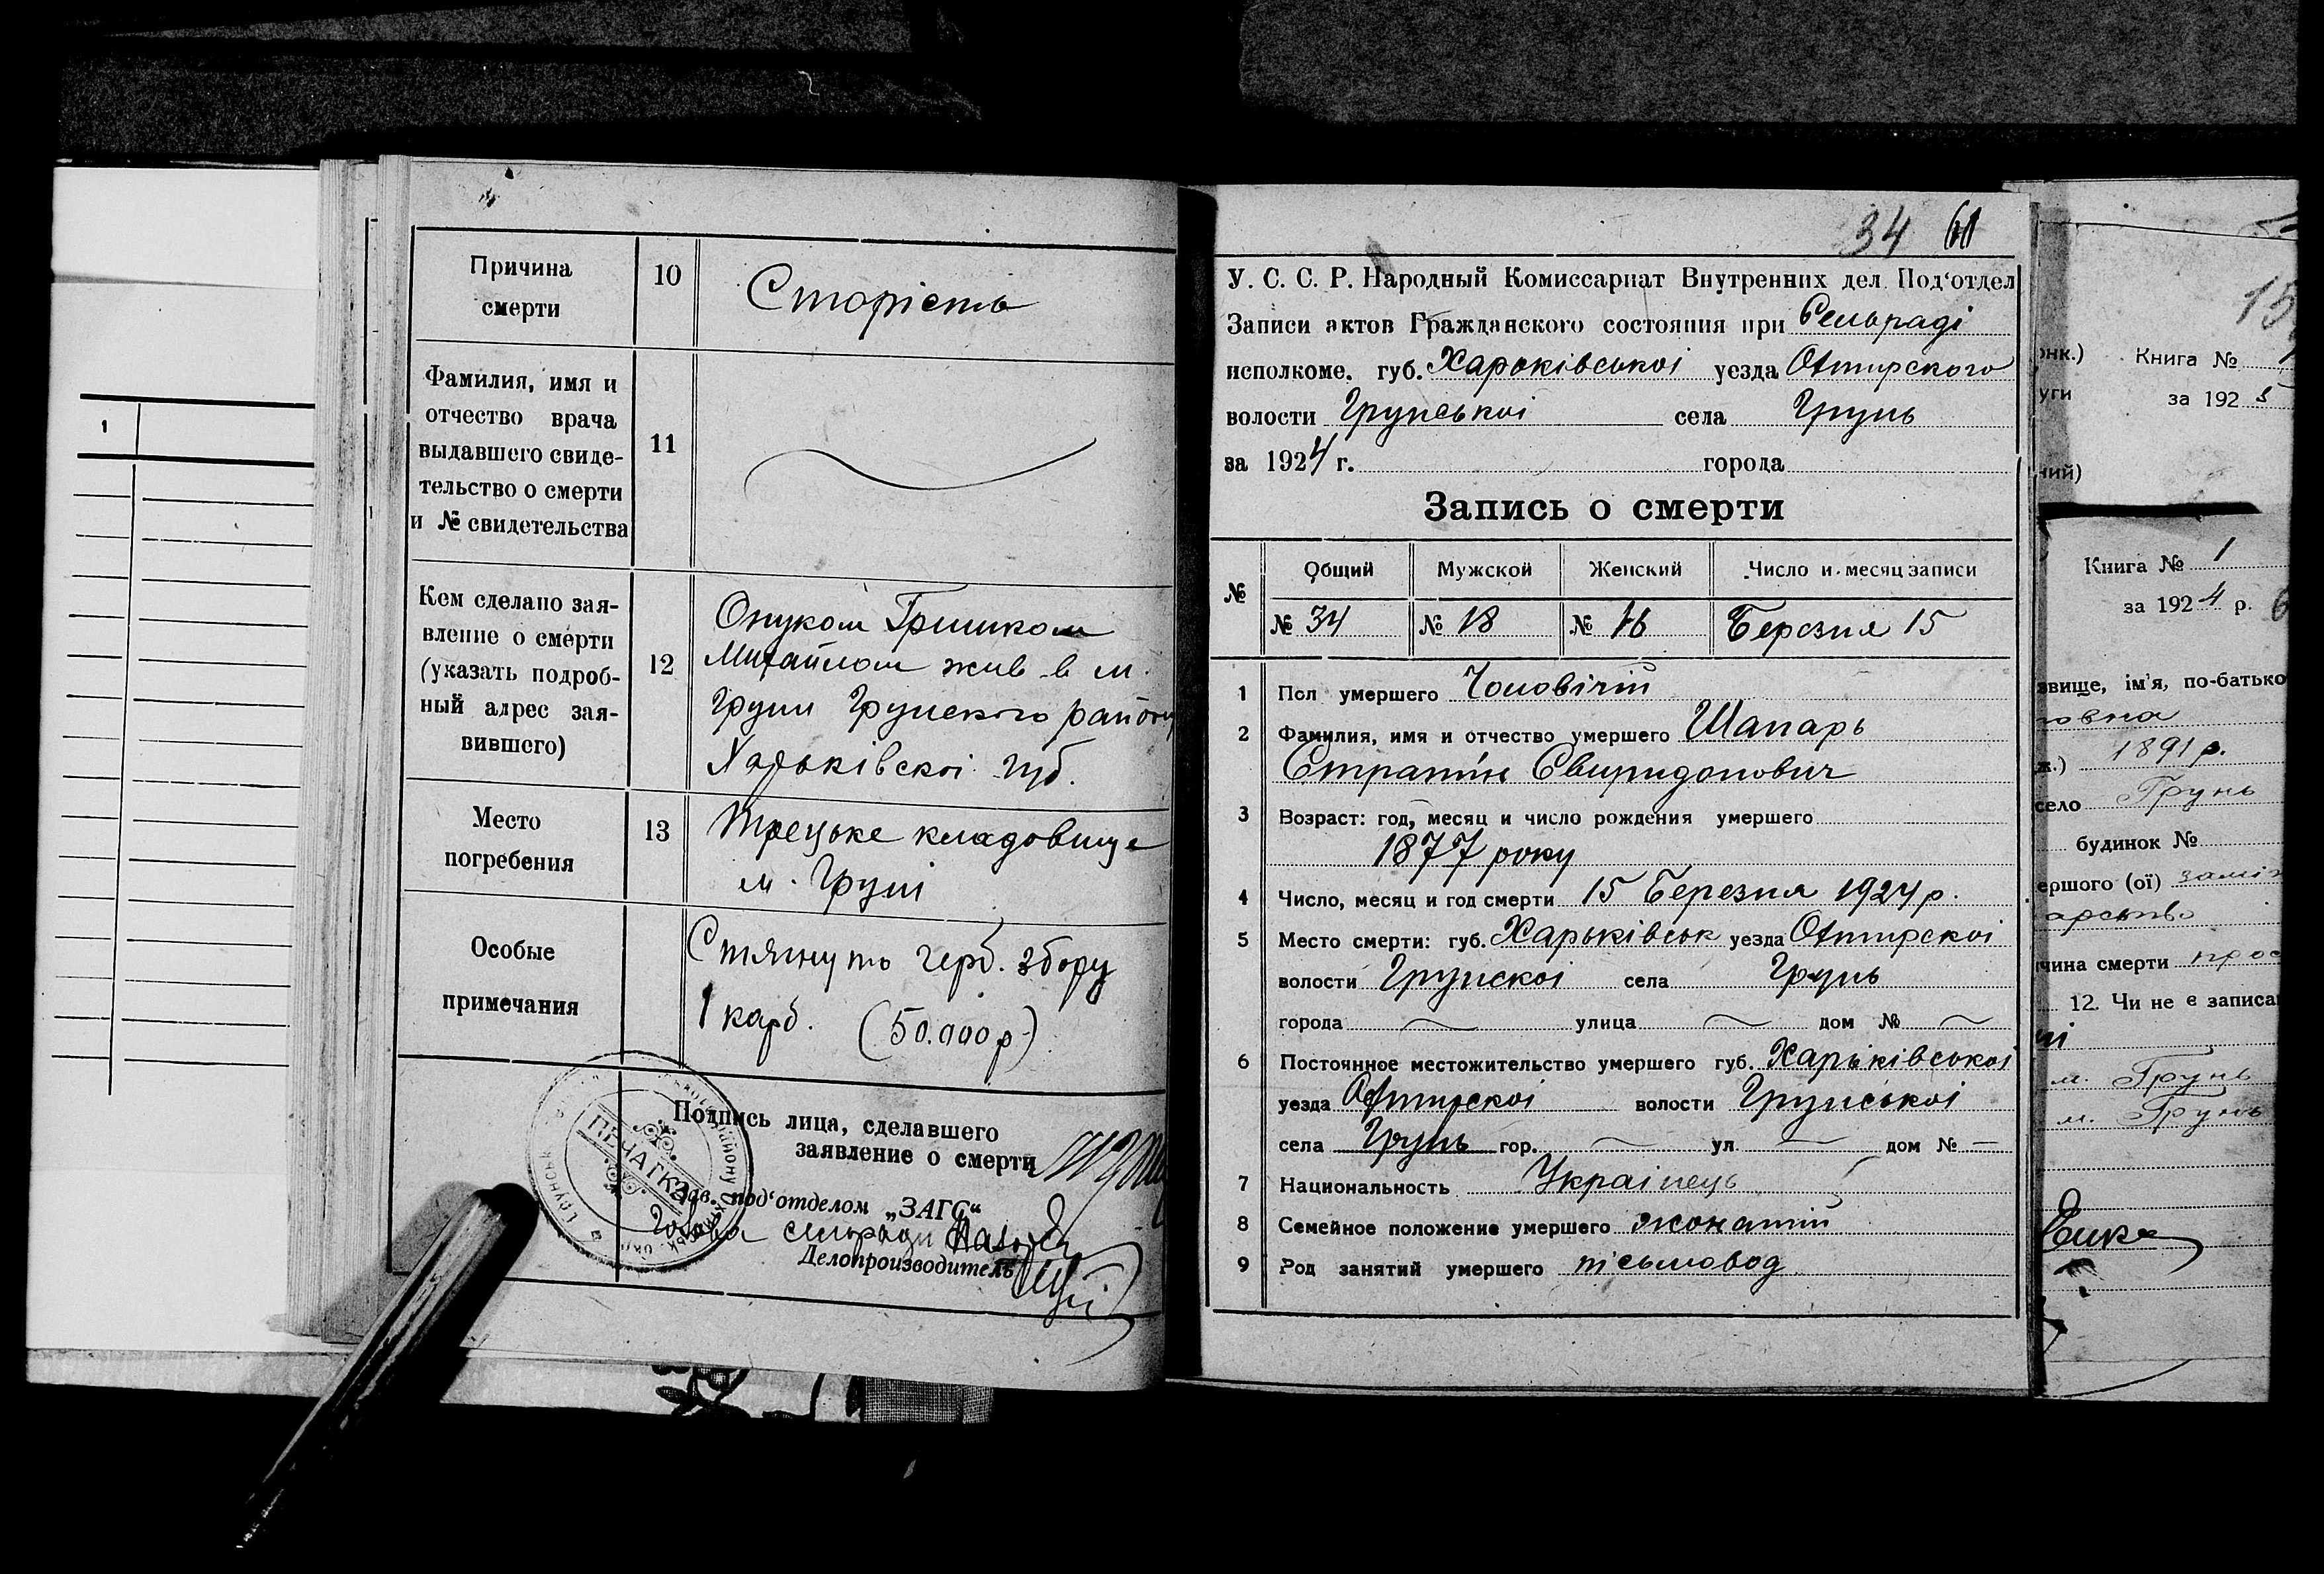 1
Причина
смерти
10
Старість
Фамилия, имя и
отчество врача
выдавшего свиде-
тельство о смерти
и № свидетельства
11
Кем сделано зая-
вление о смерти
(указать подроб-
ный адрес зая-
вившего)
12
Онуком Гришком
Михайлом жив в м.
Груни Грунского району
Харьківскоі губ.
Место
погребения
13
Троецьке кладовище
м. Груні
Особые
примечания
Стягнуто герб. збору
1 карб. (50.000 р)
Подпись лица, сделавшего
заявление о смерти
ПЕЧАТКА
Зав. под‘отделом „ЗАГС“
Голова сельради
Делопроизводитель
34 61
У. С. С. Р. Народный Комиссариат Внутренних дел. Под‘отдел
Записи актов Гражданского состояния при Сельраді
исполкоме. губ. Харьківськоі уезда Охтирского
волости Грунськоі села Грунь
за 1924 г. города
Запись о смерти
№ Общий Мужской Женский Число и месяц записи
№ 34 № 18 № 16 Березня 15
1 Пол умершего Чоловічий
2 Фамилия, имя и отчество умершего Шапарь
Стратін Свиридонович
3 Возраст: год, месяц и число рождения умершего
1877 року
4 Число, месяц и год смерти 15 Березня 1924 р.
5 Место смерти: губ. Харьківськ уезда Охтирскоі
волости Грунскоі села Грунь
города улица дом №
6 Постоянное местожительство умершего губ. Харьківськоі
уезда Охтирскоі волости Грунськоі
села Грунь гор. ул. дом № —
7 Национальность Украінець
8 Семейное положение умершего жонатий
9 Род занятий умершего пісьмовод
15
онк.) Книга №
уги за 1925
ний)
Книга № 1
за 1924 р.
звище, ім’я, по-батько
овна
ж.) 1891 р.
село Грунь
будинок №
ершого (ої) замі
арство
чина смерти
12. Чи не є записа
м. Грунь
м. Грунь